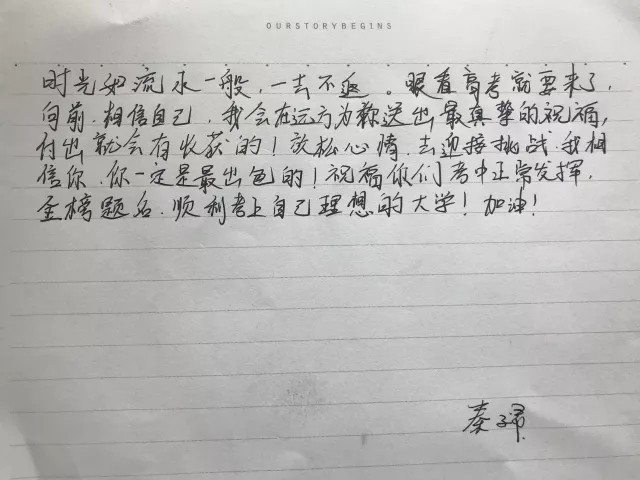 OURSTORYBEGINS
时光如流水一般,一去不返。眼看高考就要来了,
向前.相信自己.我会在远方为你送出最真挚的祝福,
付出就会有收获的!放松心情.去迎接挑战.我相
信你.你一定是最出色的!祝福你们考中正常发挥.
金榜题名.顺利考上自己理想的大学!加油!
秦